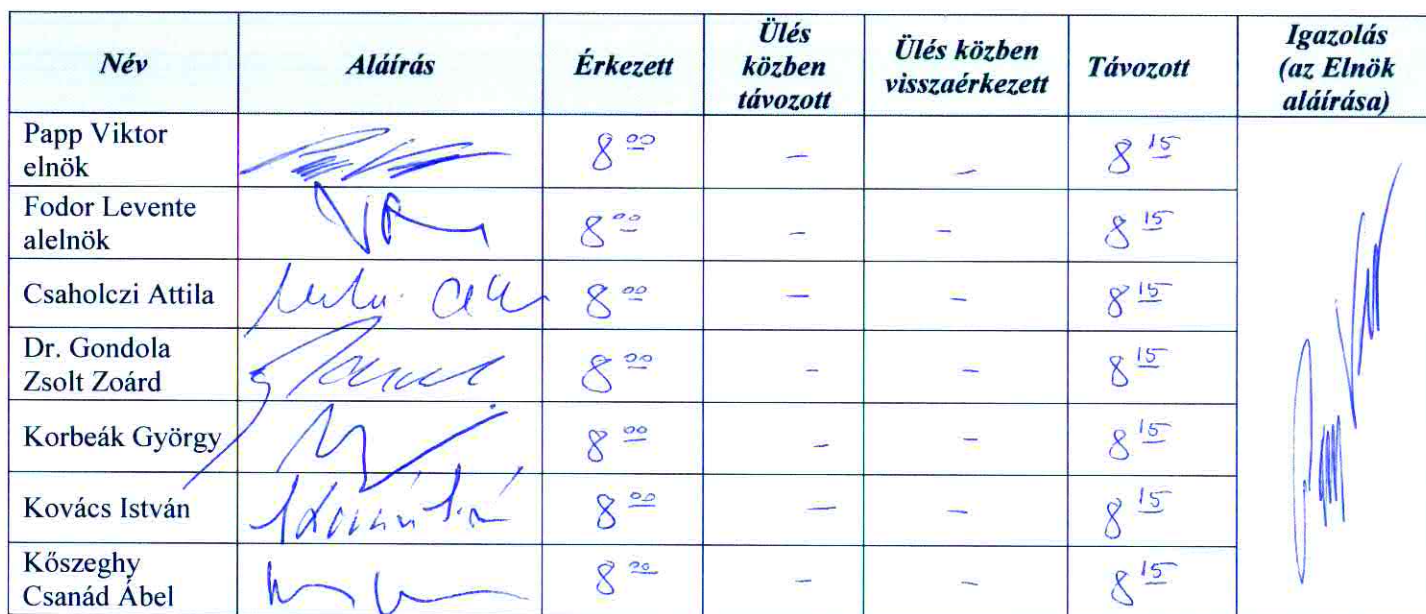 Név Aláírás Érkezett Ülés közben távozott Ülés közben visszaérkezett Távozott Igazolás (az Elnök aláírása)
Papp Viktor
elnök 8 00 – – 8 15
Fodor Levente
alelnök 8 00 – – 8 15
Csaholczi Attila 8 00 – – 8 15
Dr. Gondola
Zsolt Zoárd 8 00 – – 8 15
Korbeák György 8 00 – – 8 15
Kovács István 8 00 – – 8 15
Kőszeghy
Csanád Ábel 8 00 – – 8 15